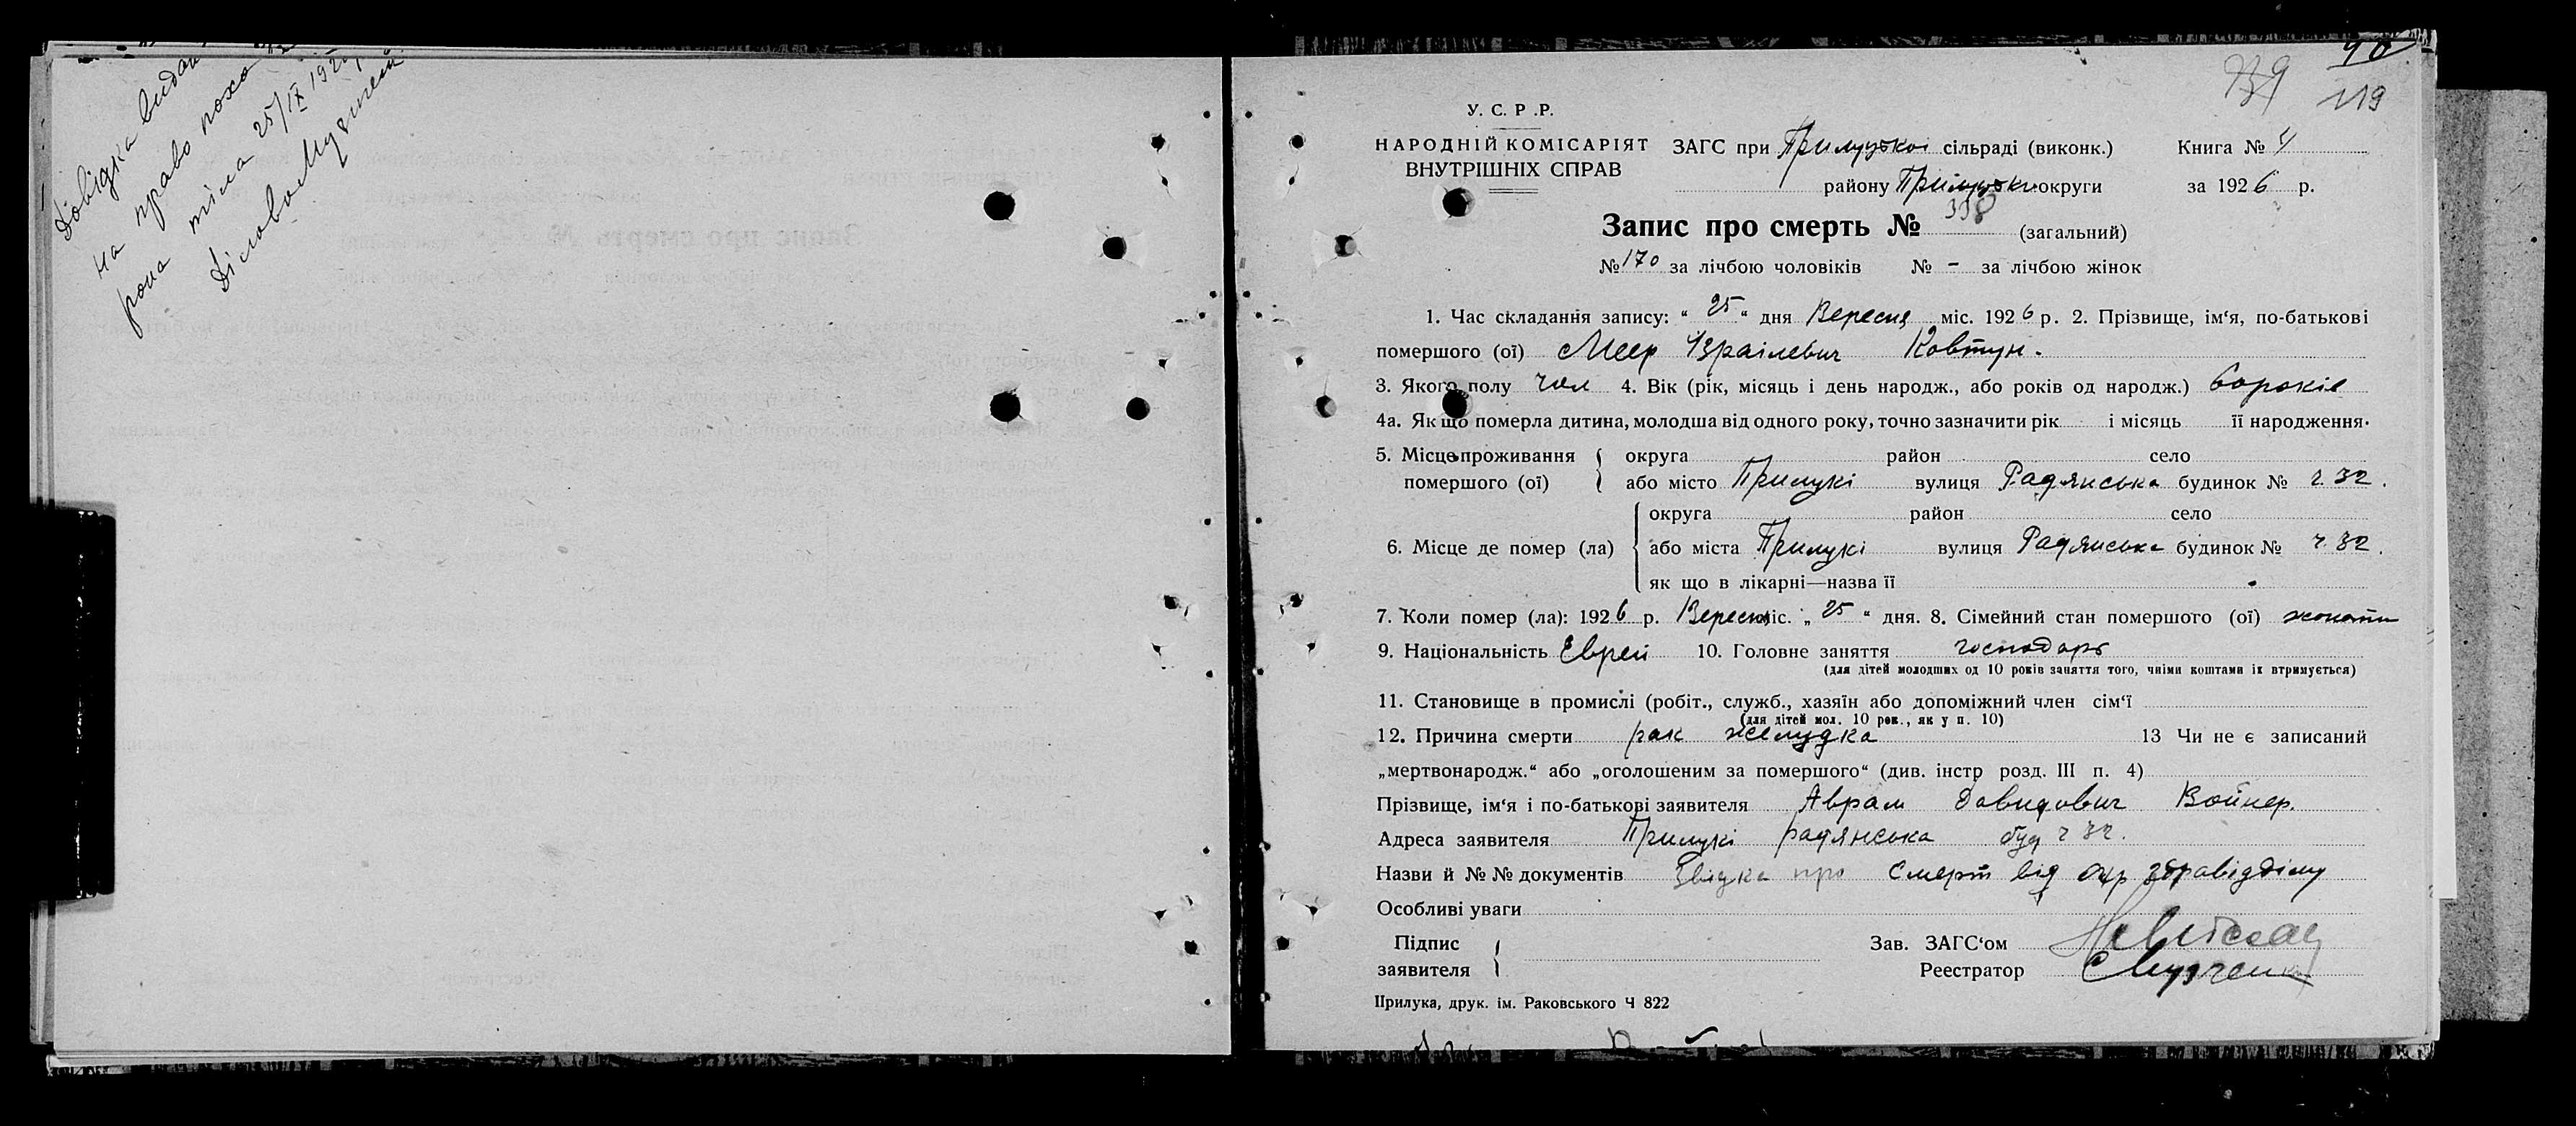 Довідка видана
на право похо
рона тіла 25/IX 192
Діловод Мудренко
739
119
У. С. Р. Р.
НАРОДНІЙ КОМІСАРІЯТ ЗАГС при Прилуцкої сільраді (виконк.) Книга № 4
ВНУТРІШНІХ СПРАВ району Прилуцки округи за 1926 р.
Запис про смерть № 338 (загальний)
№ 170 за лічбою чоловіків № – за лічбою жінок
1. Час складання запису: “ 25 “ дня Вересня міс. 1926 р. 2. Прізвище, ім‘я, по-батькові
помершого (ої) Меер Ізраілевич Ковтун.
3. Якого полу чол 4. Вік (рік, місяць і день народж., або років од народж.) 60 років
4а. Як що померла дитина, молодша від одного року, точно зазначити рік і місяць її народження.
5. Місце проживання округа район село
помершого (ої) або місто Прилукі вулиця Радянська будинок № ч 32.
округа район село
6. Місце де помер (ла) або міста Прилукі вулиця Радянська будинок № ч 32.
як що в лікарні—назва її
7. Коли помер (ла): 1926 р. Вересня міс. „ 25 “ дня. 8. Сімейний стан помершого (ої) жонати
9. Національність Еврей 10. Головне заняття господарь
(для дітей молодших од 10 років заняття того, чиїми коштами їх втримується)
11. Становище в промислі (робіт., служб., хазяїн або допоміжний член сім‘ї
(для дітей мол. 10 рок., як у п. 10)
12. Причина смерти рак желудка 13 Чи не є записаний
„мертвонародж.“ або „оголошеним за помершого“ (див. інстр розд. III п. 4)
Прізвище, ім‘я і по-батькові заявителя Аврам Давидович Войнер.
Адреса заявителя Прилукі радянська буд ч 32.
Назви й №№ документів Звідка про Смерт від окр здравідділу
Особливі уваги
Підпис Зав. ЗАГС‘ом
заявителя Реестратор
Прилука, друк. ім. Раковського Ч 822